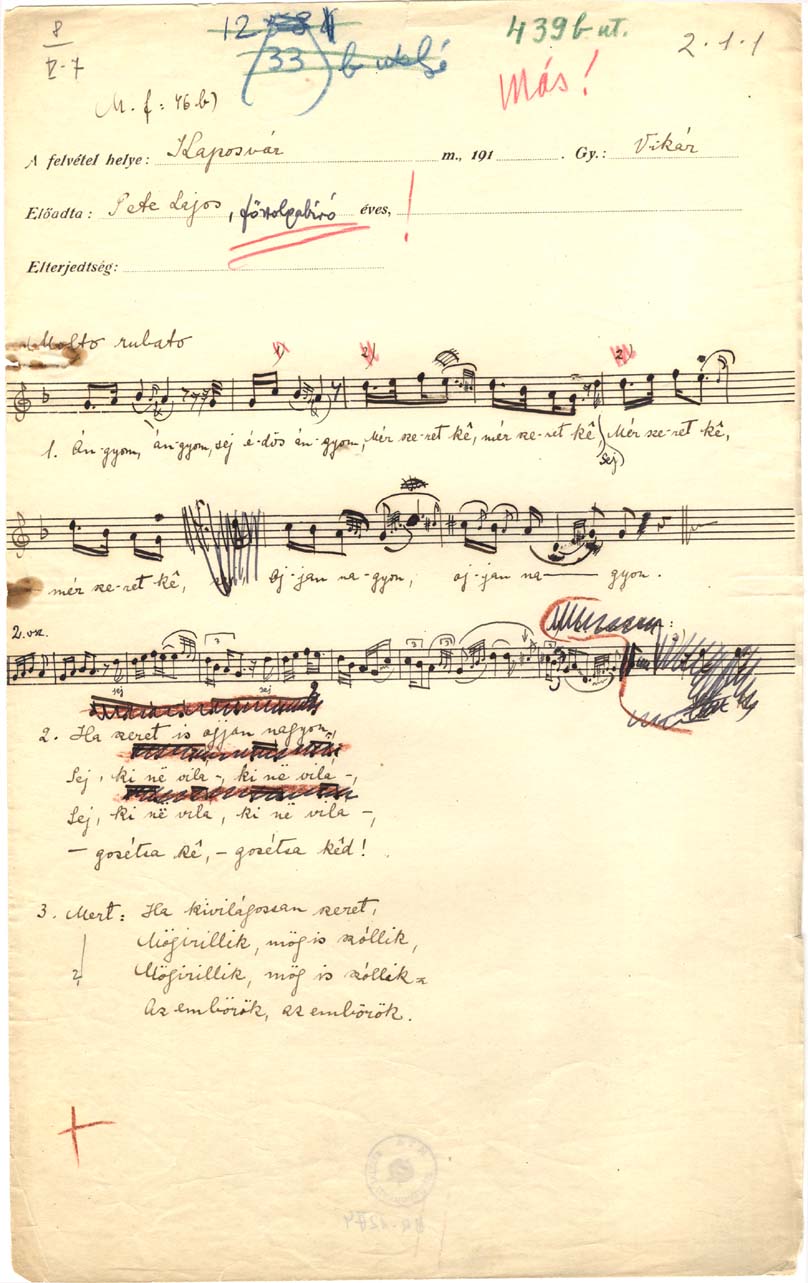 8
V-7
439 b-ut.
2.1.1
(33) b utolsó
Más!
M. f: 46.b)
A felvétel helye: Kaposvár m., 191 . Gy.: Vikár
Előadta: Pete Lajos, főszolgabíró éves, !
Elterjedtség:
Molto rubato
1) 2) 2)
1. Án-gyom, án-gyom, sej é-dös án-gyom, Mér sze-ret kê, mér sze-ret kê, Mér sze-ret kê,
Sej
mér sze-ret kê, oj-jan na-gyon, oj-jan na- gyon.
2. vsz.
3 3 3
sej sej
2. Ha szeret is ojjan nagyon,
Sej, ki në vilá-, ki në vilá-,
Sej, ki në vila, ki në vila-,
- gosétsa kê, - gosétsa kêd!
3. Mert: Ha kivilágossan szeret,
Mögirillik, mög is szóllik,
Mögirillik, mög is szóllik
Az embörök, az embörök.